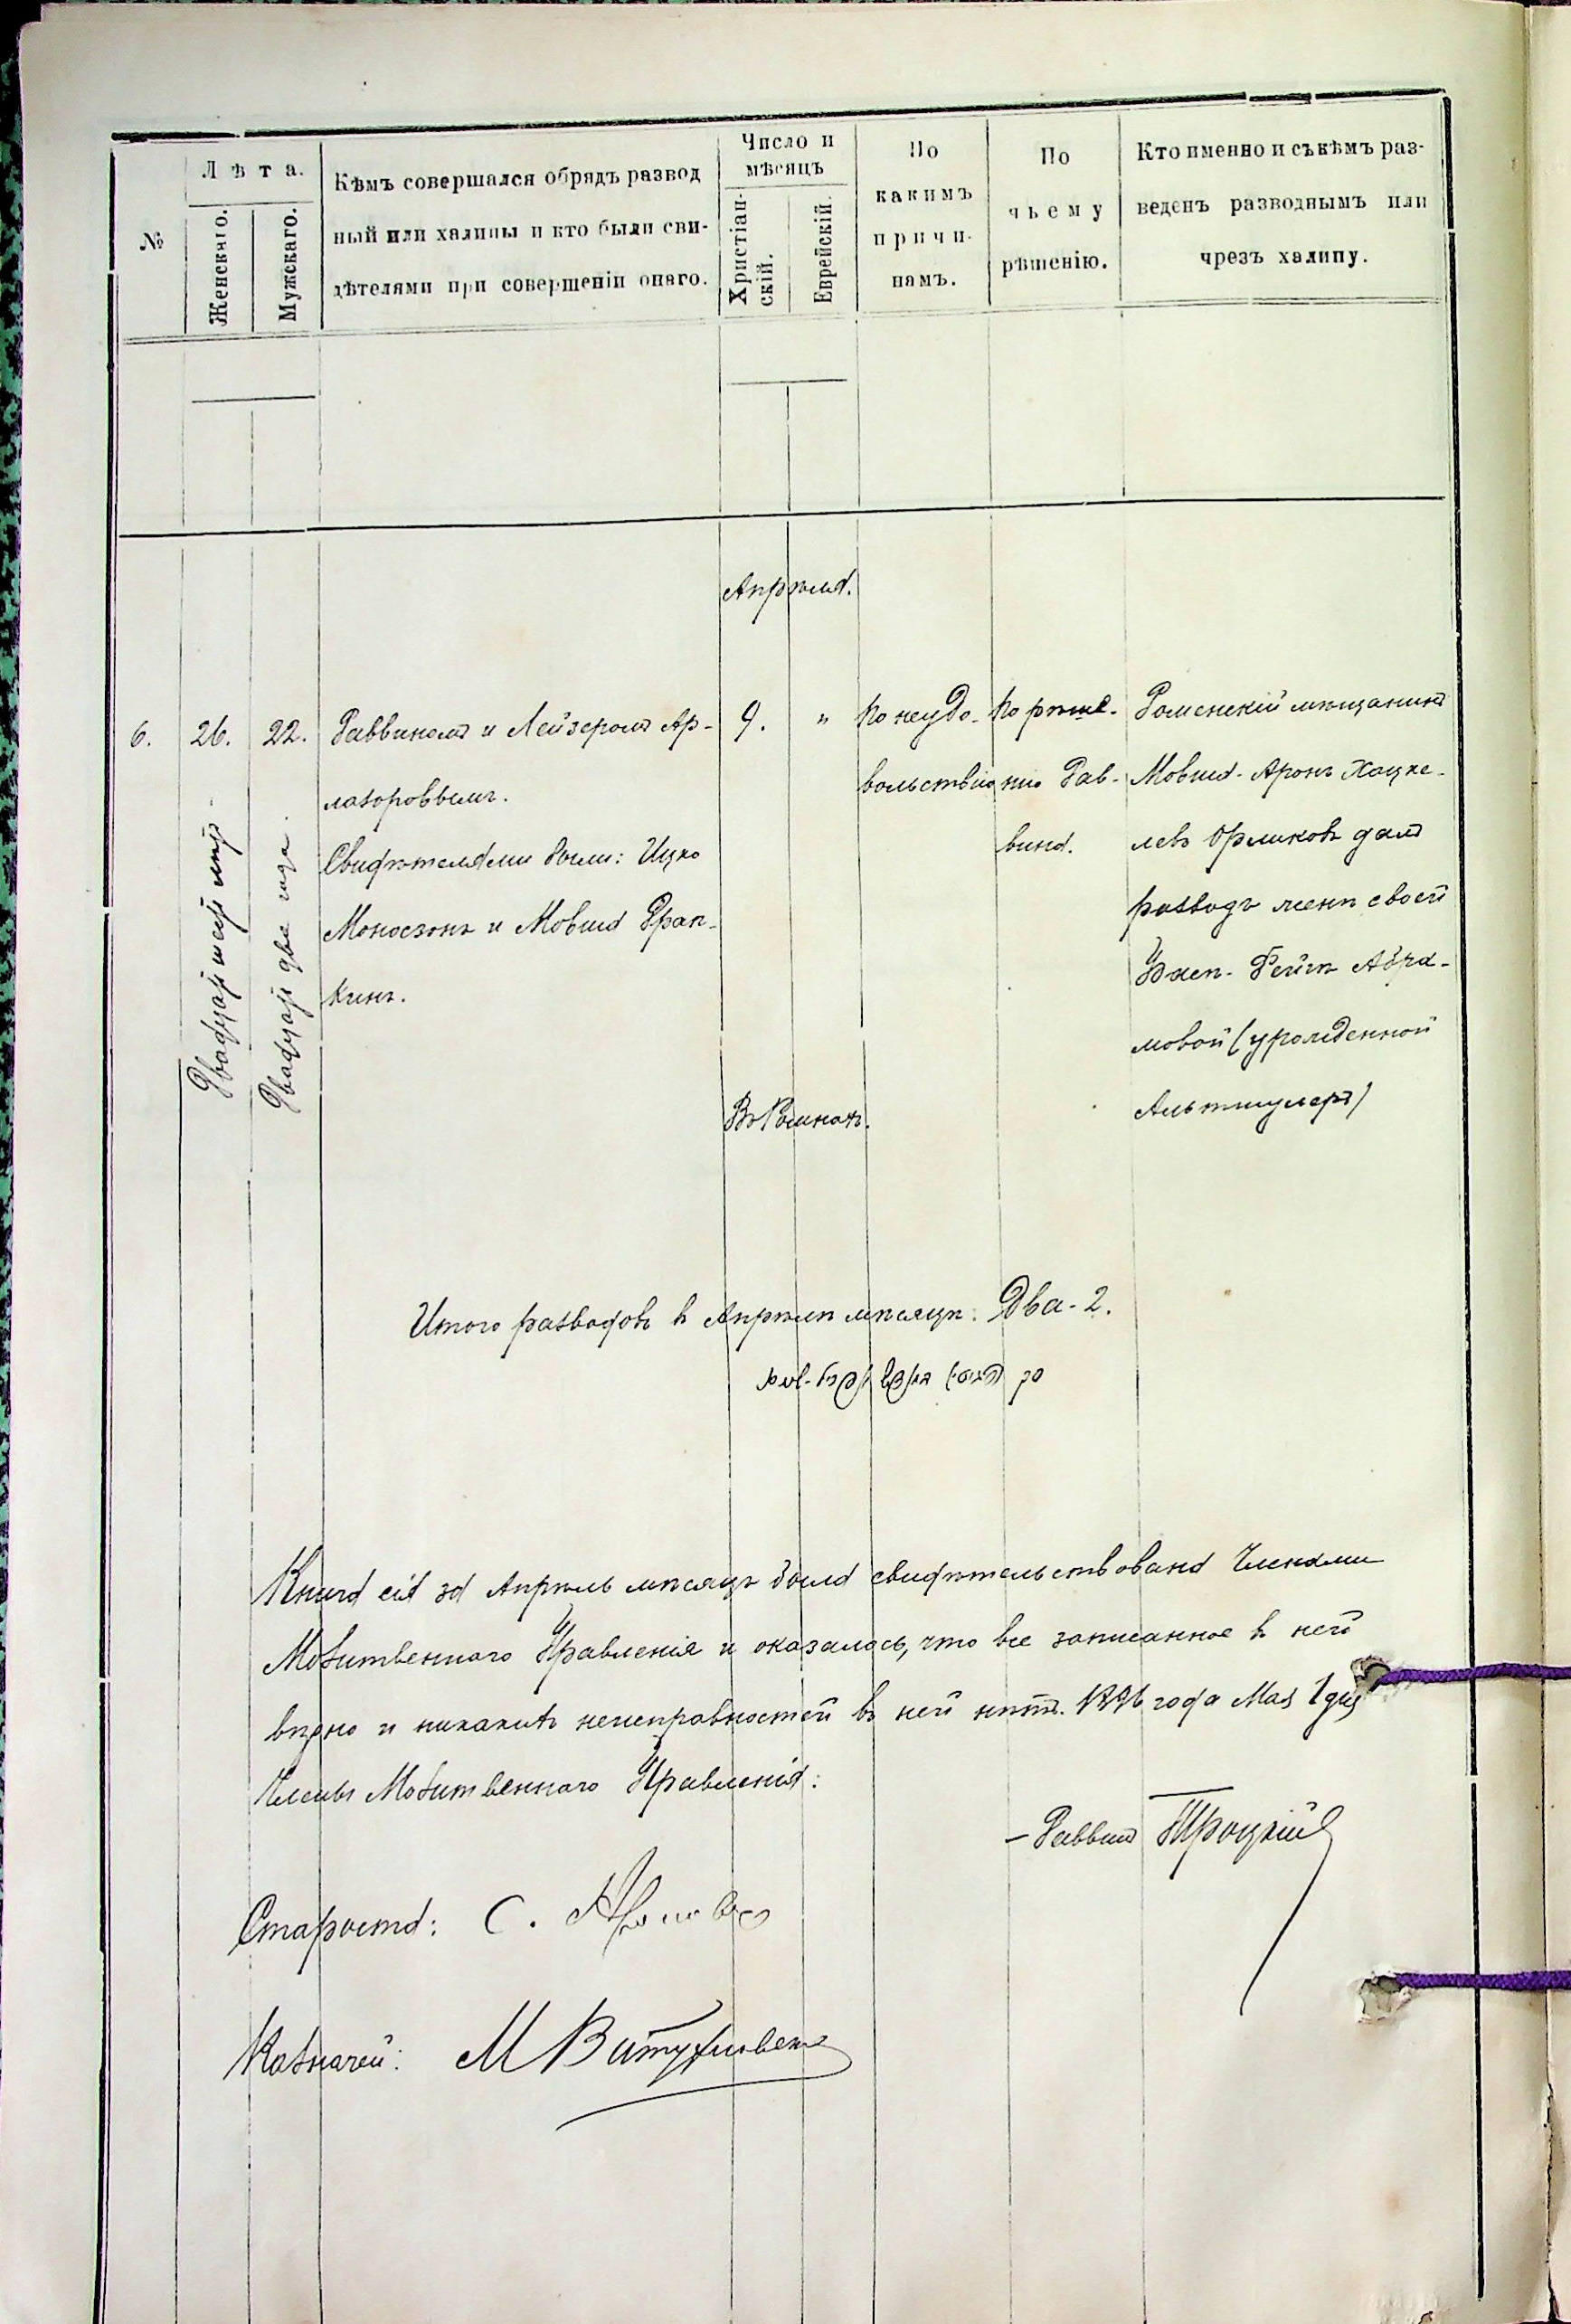 №
Лѣта.
Женскаго.
Мужскаго.
Кѣмъ совершался обрядъ развод
ный или халицы и кто были сви-
дѣтелями при совершеніи онаго.
Число и
мѣсяцъ
Христіан-
скій.
Еврейскій.
По
какимъ
причи-
намъ.
По
чьему
рѣшенію.
Кто именно и съ кѣмъ раз-
веденъ разводнымъ или
чрезъ халицу.
Апрѣля.
6.
26.
Двадцать шесть лѣтъ
22.
Двадцать два года.
Раввиномъ и Лейзеромъ Ар-
лазоровымъ.
Свидѣтелями были: Ицко
Моносзонъ и Мовша Фрап-
кинъ.
9.
"
По неудо-
вольствію
По рѣше-
нію Рав-
вина.
Роменскій мѣщанинъ
Мовша-Аронъ Хацке-
левъ Орликовъ далъ
разводъ женѣ своей
Хаѣ-Фейгѣ Абра-
мовой (урожденной
Альтшулеръ)
Въ Ромнахъ.
Итого разводовъ въ Апрѣлѣ мѣсяцѣ: Два-2.
Книга сія за Апрѣль мѣсяцъ была свидѣтельствована Членами
Молитвеннаго Правленія и оказалось, что все записанное въ ней
вѣрно и никакихъ неисправностей въ ней нѣтъ. 1896 года Мая 1 дня
Члены Молитвеннаго Правленія:
Раввинъ Троцкій
Староста: С.
Казначей: М